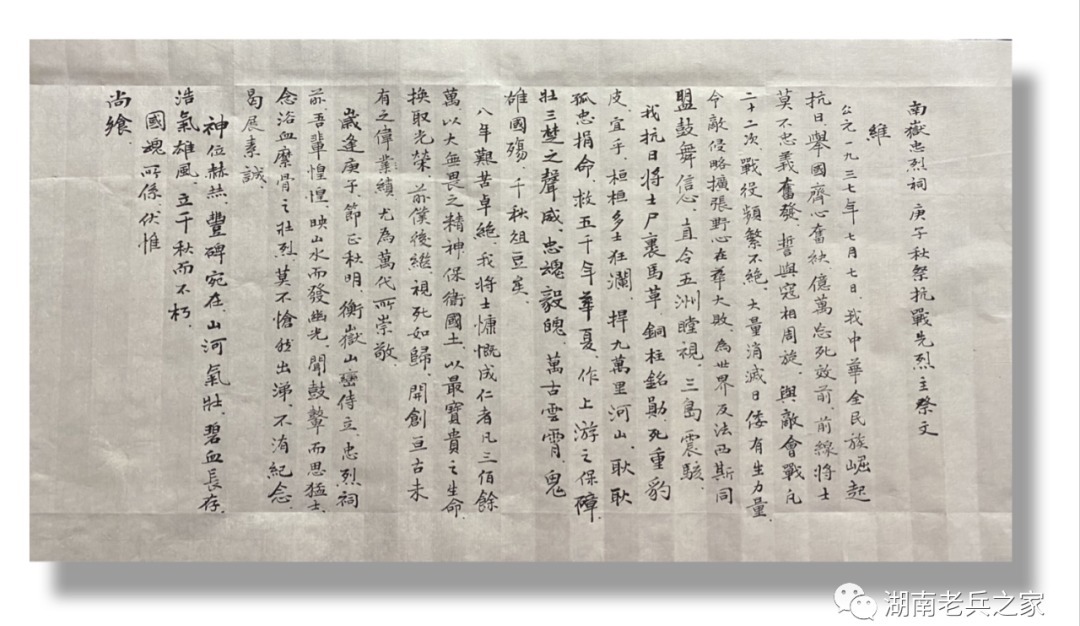 南嶽忠烈祠庚子秋祭抗戰先烈主祭文
維
公元一九三七年七月七日、我中華全民族崛起
抗日、舉國齊心奮袂億萬忘死效前、前線將士
莫不忠義奮發、誓與寇相周旋、與敵會戰凡
二十二次、戰役頻繁不絕、大量消滅日倭有生力量、
令敵侵略擴張野心在華大敗、為世界反法西斯同
盟鼓舞信心、直令五洲瞠視、三島震駭、
我抗日將士尸裹馬革、銅柱銘勛、死重豹
皮、宜乎、桓桓多士狂瀾、捍九萬里河山、耿耿
孤忠捐命、救五千年華夏、作上游之保障、
壯三楚之聲威、忠魂毅魄、萬古雲霄、鬼
雄國殤、千秋俎豆矣、
八年艱苦卓絕、我將士慷慨成仁者凡三佰餘
萬、以大無畏之精神保衛國土、以最寶貴之生命
換取光榮、前僕後繼、視死如歸、開創亘古未
有之偉業績、尤為萬代所崇敬、
歲逢庚子、節正秋明、衡嶽山巒侍立、忠烈祠
前吾輩惶惶、映山水而發幽光、聞鼓鼙而思猛士、
念浴血縻骨之壯烈、莫不愴然出涕、不洧紀念、
曷展素誠、
神位赫赫、豐碑宛在、山河氣壯、碧血長存、
浩氣雄風、立千秋而不朽、
國魂所係、伏惟
尚饗、
湖南老兵之家